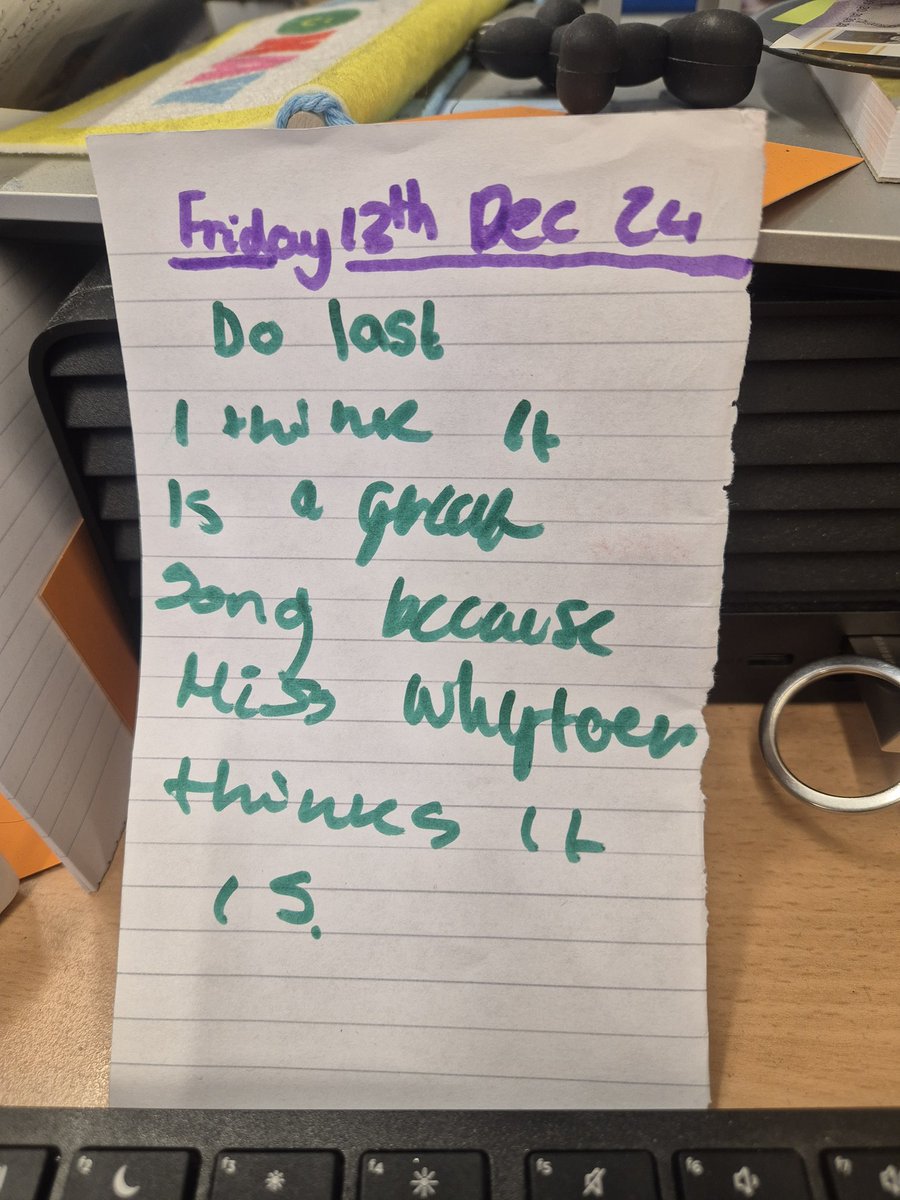 Friday 13th Dec 24
Do last
I think it
Is a great
song because
Miss Whytoer
thinks it
is.
f2
f3
f4
f5
f6
f7